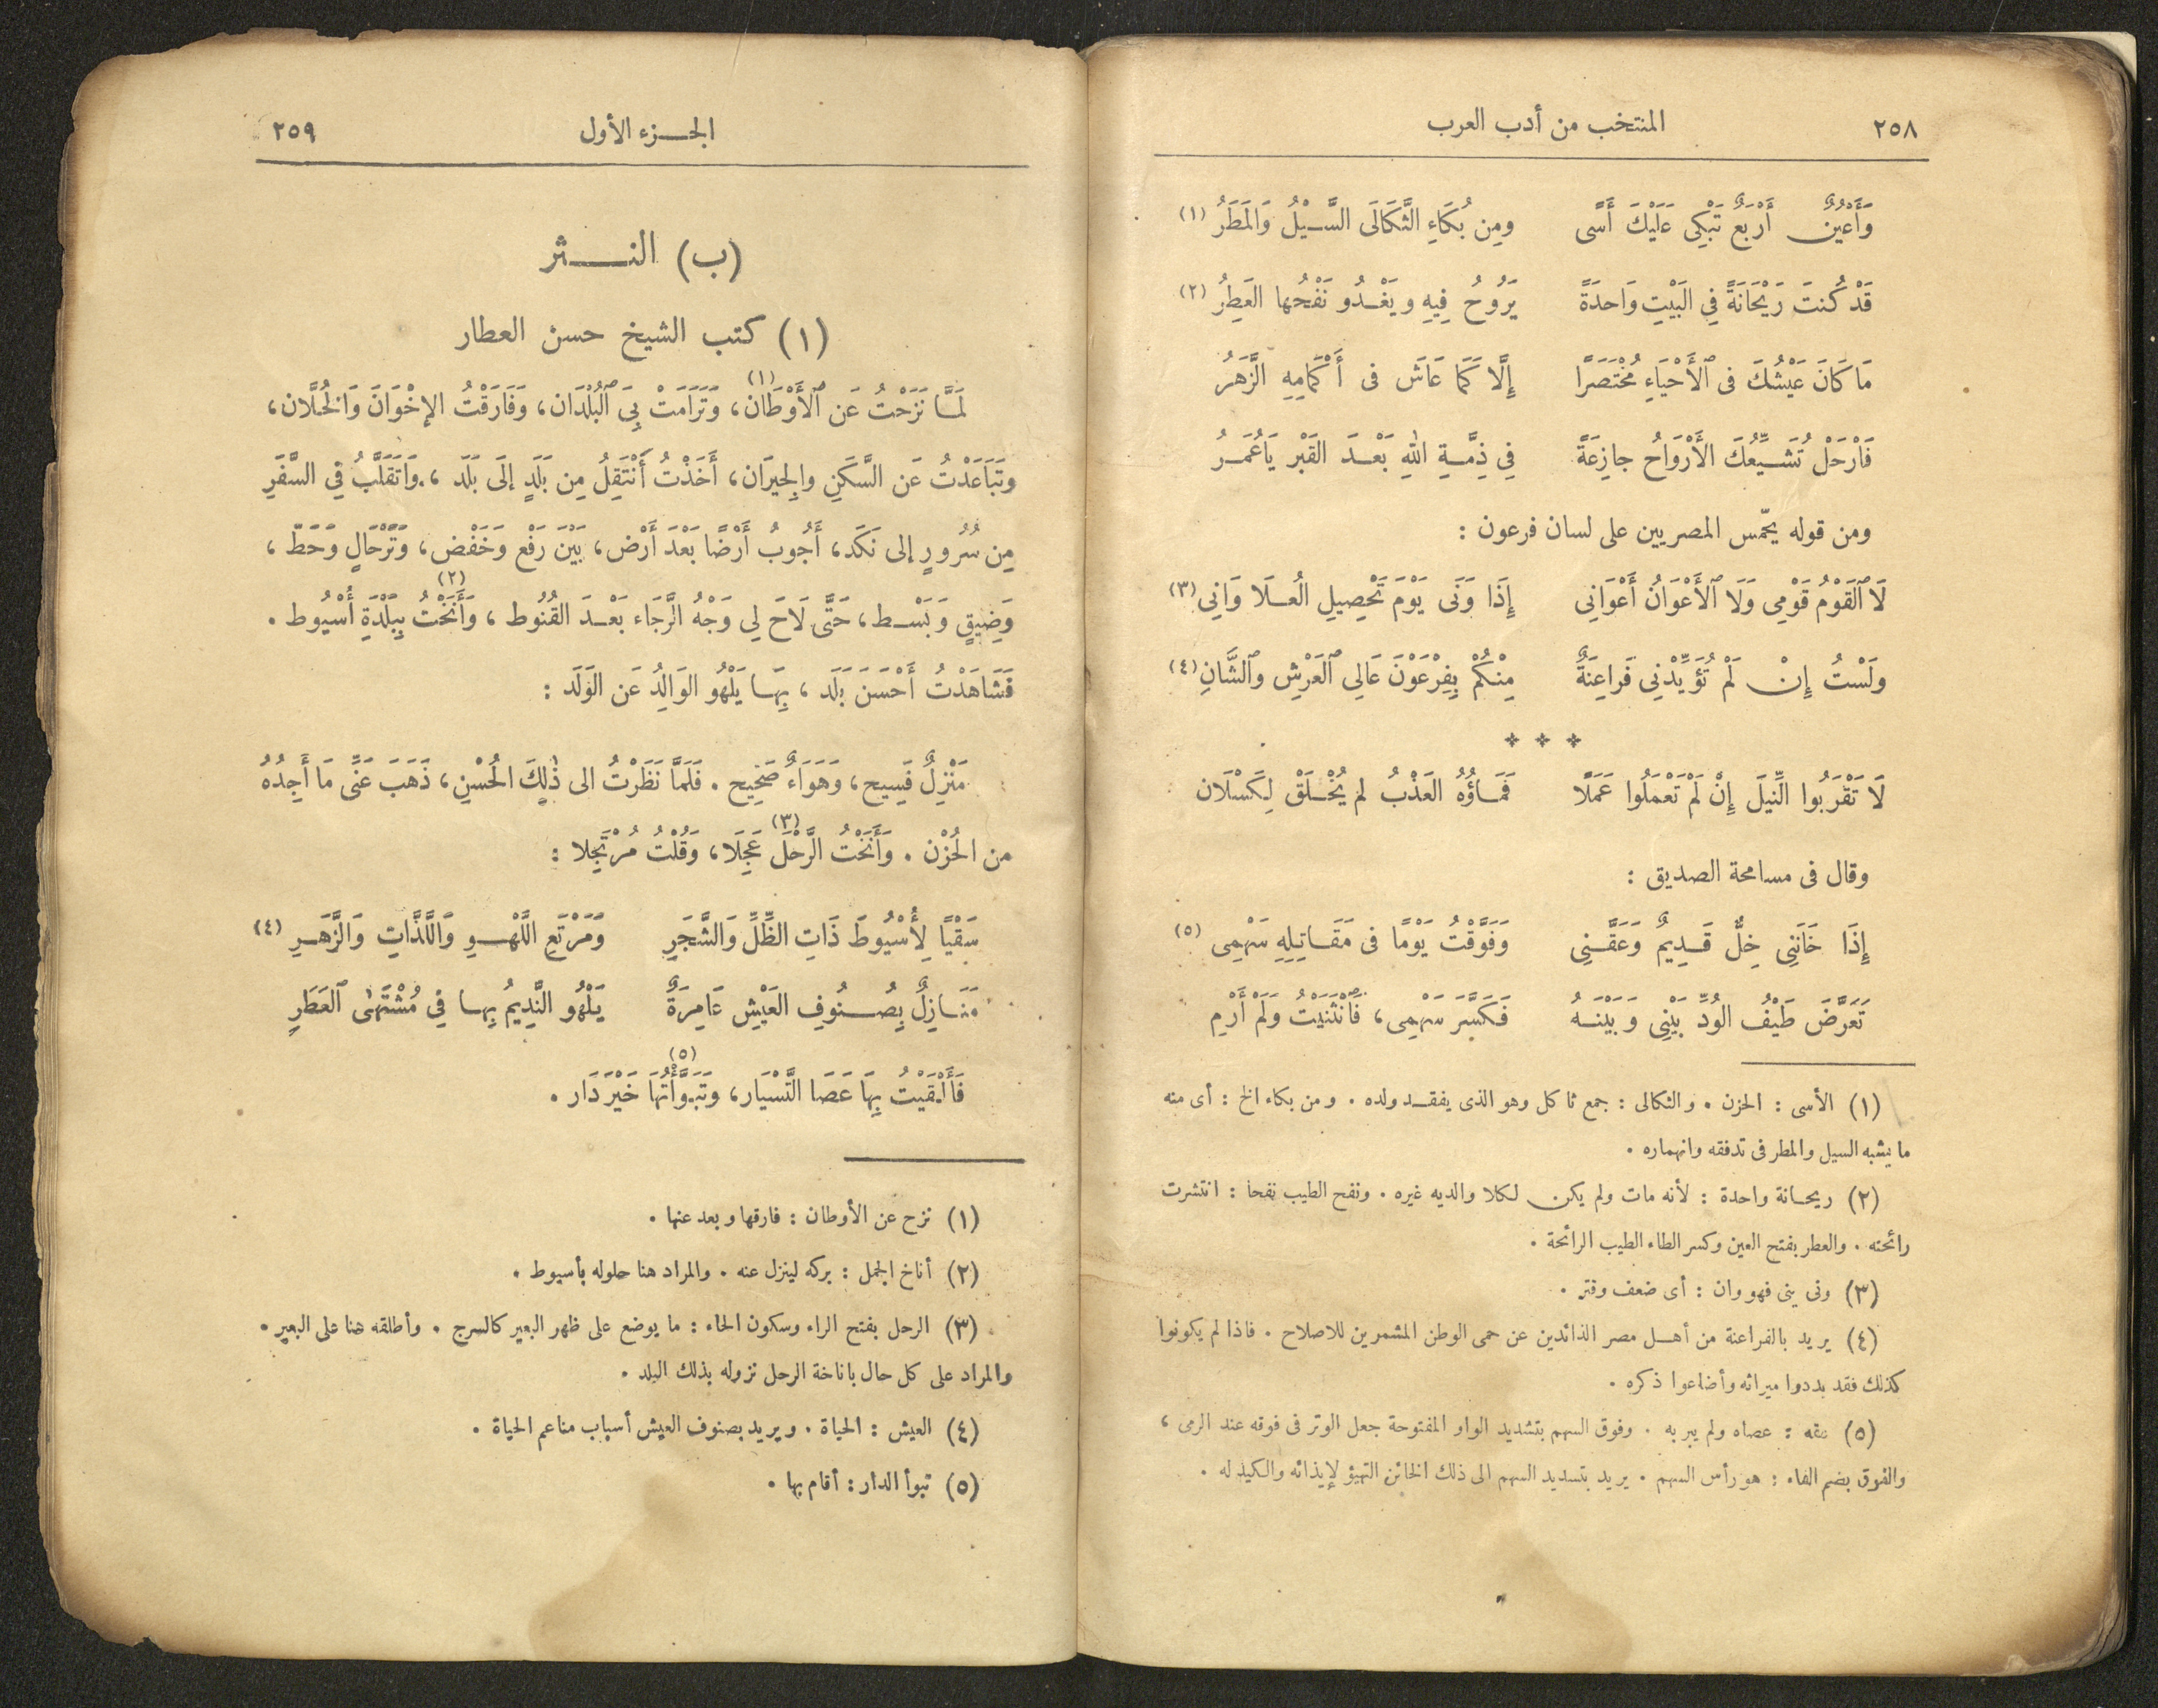 ٢٥٨ المنتخب من أدب العرب
وَأَعْيُنٌ أَرْبَعٌ تَبْكِى عَلَيْكَ أَسًى ومِن بُكَاءِ الثَّكَالَى السَّـيْلُ وَالمَطَرُ (١)
قَدْ كُنتَ رَيْحَانَةً فِي البَيْتِ وَاحدَةً يَرُوحُ فِيهِ ويَغْـدُو نَفْحُها العَطِرُ (٢)
مَا كَانَ عَيْشُكَ فى ٱلأَحْيَاءِ مُخْتَصَرًا إِلَّا كَمَا عَاشَ فى أَكْمَامِهِ الزَّهَرُ
فَارْحَلْ تُشَـيِّعُكَ الأَرْوَاحُ جازِعَةً فِي ذِمَّـةِ اللهِ بَعْـدَ القَبْر يَاعُمَـرُ
ومن قوله يحّمس المصريين على لسان فرعون :
لَا ٱلقَوْمُ قَوْمِى وَلَا ٱلأَعْوَانُ أَعْوَانِى إِذَا وَنَى يَوْمَ تَحْصِيلِ العُـلَا وَانِي (٣)
ولَسْتُ إِنْ لَمْ تُؤَيِّدْنِى فَراعِنَةٌ مِنْكُمْ بِفِرْعَوْنَ عَالِى ٱلعَرْشِ وٱلشَّانِ (٤)
* * *
لَا تَقْرَبُوا النِّيلَ إِنْ لَمْ تَعْمَلُوا عَمَلًا فَمَـاؤُهُ العَذْبُ لم يُخْـلَقْ لِكَسْلَان
وقال فى مسامحة الصديق :
إِذَا خَانَنِى خِلٌّ قَـدِيمٌ وَعَقَّـنِى وَفَوَّقْتُ يَوْمًا فى مَقَـاتِـلِهِ سَهْمِى (٥)
تَعَرَّضَ طَيْفُ الوُدِّ بَيْنِى وَبَيْنَـهُ فَـكَسَّرَ سَهْمِى، فَانْثَنَيْتُ وَلَمْ أَرْمِ
(١) الأسى : الحزن . والثكالى : جمع ثاكل وهو الذى يفقـد ولده . ومن بكاء الخ : أى منه
ما يشبه السيل والمطر فى تدفقه وانهماره .
(٢) ريحـانة واحدة : لأنه مات ولم يكن لكلا والديه غيره . ونفح الطيب نفحا : انتشرت
رائحته . والعطر بفتح العين وكسر الطاء الطيب الرائحة .
(٣) ونى ينى فهو وان : أى ضعف وفتر .
(٤) يريد بالفراعنة من أهـل مصر الذائدين عن حمى الوطن المشمرين للاصلاح . فاذا لم يكونوا
كذلك فقد بددوا ميراثه وأضاعوا ذكره .
(٥) عقه : عصاه ولم يبر به . وفوق السهم بتشديد الواو المفتوحة جعل الوتر فى فوقه عند الرمى ،
والفوق بضم الفاء : هو رأس السهم . يريد بتسديد السهم الى ذلك الخائن التهيؤ لإيذائه والكيد له .
الجـزء الأول ٢٥٩
(ب) النـــثر
(١) كتب الشيخ حسن العطار
لَمَّـا نَزَحْتُ عَن ٱلأَوْطَان(١)، وَتَرَامَتْ بِيَ ٱلبُلْدَان، وَفَارَقْتُ الإخْوَانَ وَالخُلَّان،
وتَبَاعَدْتُ عَن السَّكَنِ والجِيرَان، أَخَذْتُ أَنْتَقِلُ مِن بَلَدٍ إلَى بَلَد ، وَاتَقَلَّبُ فِي السَّفَرِ
مِن سُرُورٍ إلى نَكَد، أَجُوبُ أَرْضًا بَعْدَ أَرْض، بَيْنَ رَفْع وَخَفْض، وَتَرْحَالٍ وَحَطّ ،
وَضِيقٍ وَبَسْـط، حَتَّى لَاحَ لِي وَجْهُ الرَّجَاء بَعْـدَ القُنُوط ، وَأَنَخْتُ(٢) بِبَلْدَةِ أُسْيُوط .
فَشَاهَدْتُ أَحْسَنَ بَلَد ، بِهَـا يَلْهُو الوَالِدُ عَن الوَلَد :
مَنْزِلٌ فَسِيح، وَهَوَاءٌ صَحِيح . فَلَمَّا نَظَرْتُ الى ذٰلِكَ الحُسْنِ، ذَهَبَ عَنِّى مَا أَجِدُهُ
من الحُزْن . وَأَنَخْتُ الرَّحْلَ(٣) عَجِلَا، وَقُلْتُ مُرْتَجِلا :
سَقْيًا لِأُسْيُوطَ ذَاتِ الظِّلِّ وَالشَّجَرِ وَمَرْتَعِ اللَّهْـوِ وَاللَّذَّاتِ وَالزَّهَـرِ (٤)
مَنَـازِلٌ بِصُـنُوفِ العَيْشِ عَامِرَةٌ يَلْهُو النَّدِيمُ بِهـا فِي مُشْتَهَى ٱلعَطَرِ
فَأَلْقَيْتُ بِهَا عَصَا التَّسْيَار، وَتَبَوَّأْتُهَا(٥) خَيْرَ دَار .
(١) نزح عن الأوطان : فارقها وبعد عنها .
(٢) أناخ الجمل : بركه لينزل عنه . والمراد هنا حلوله بأسيوط .
(٣) الرحل بفتح الراء وسكون الحاء : ما يوضع على ظهر البعير كالسرج . وأطلقه هنا على البعير .
والمراد على كل حال باناخة الرحل نزوله بذلك البلد .
(٤) العيش : الحياة . ويريد بصنوف العيش أسباب مناعم الحياة .
(٥) تبوأ الدار : أقام بها .